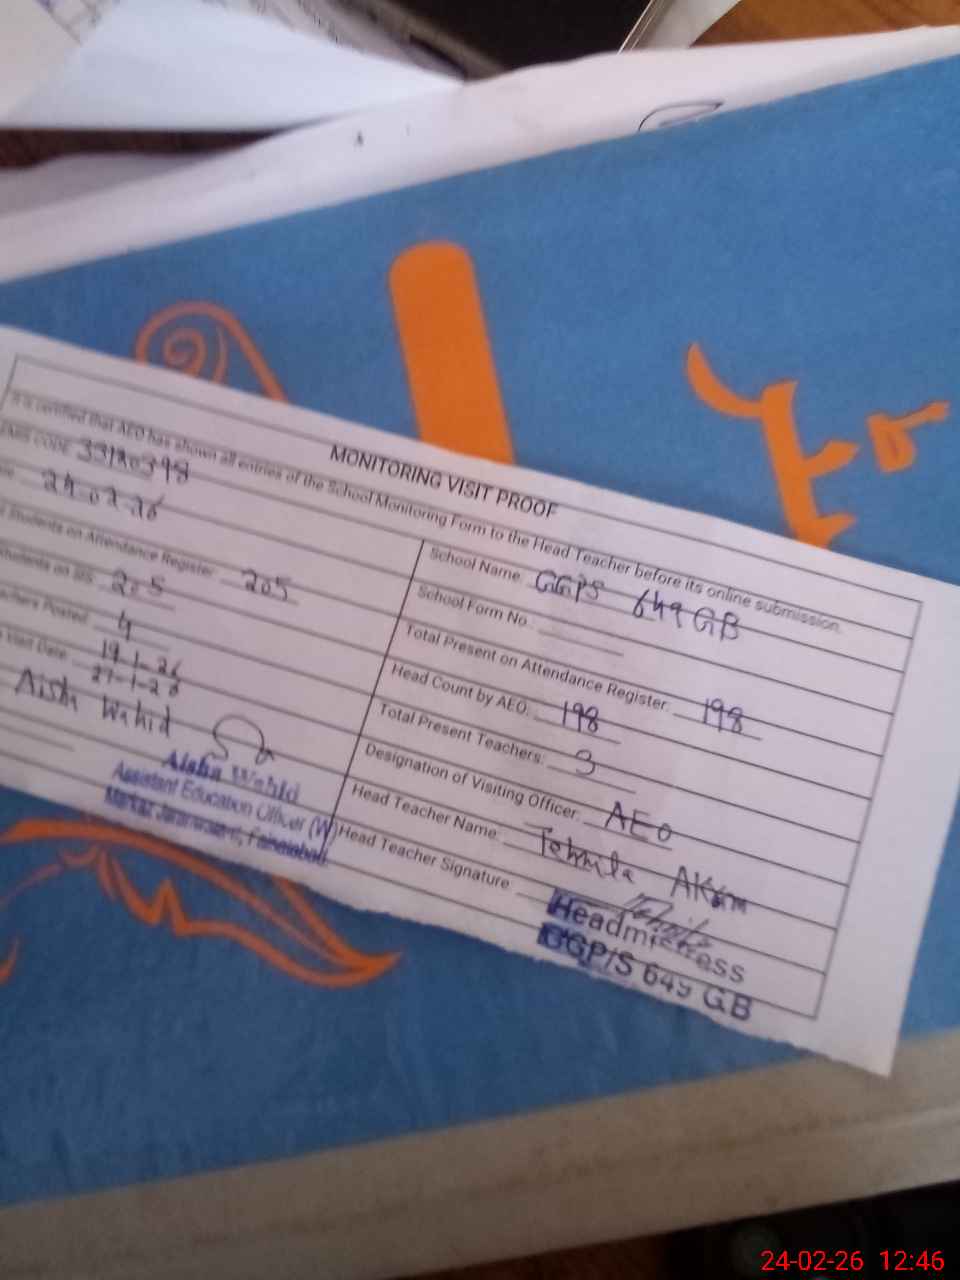 MONITORING VISIT PROOF
It is certified that AEO has shown all entries of the School Monitoring Form to the Head Teacher before its online submission.
EMIS CODE 33180398
School Name: GGPS 649 GB
24-02-26
School Form No.
Students on Attendance Register 205
Total Present on Attendance Register: 198
Students on SIS 205
Head Count by AEO: 198
Teachers Posted 4
Total Present Teachers: 3
Visit Date 19-1-26
27-1-26
Designation of Visiting Officer: AEO
Aisha Wahid
Head Teacher Name: Tehmila Akram
Head Teacher Signature:
Aisha Wahid
Assistant Education Officer (W)
Markaz Jaranwala, Faisalabad
Headmistress
GGP/S 649 GB
24-02-26 12:46